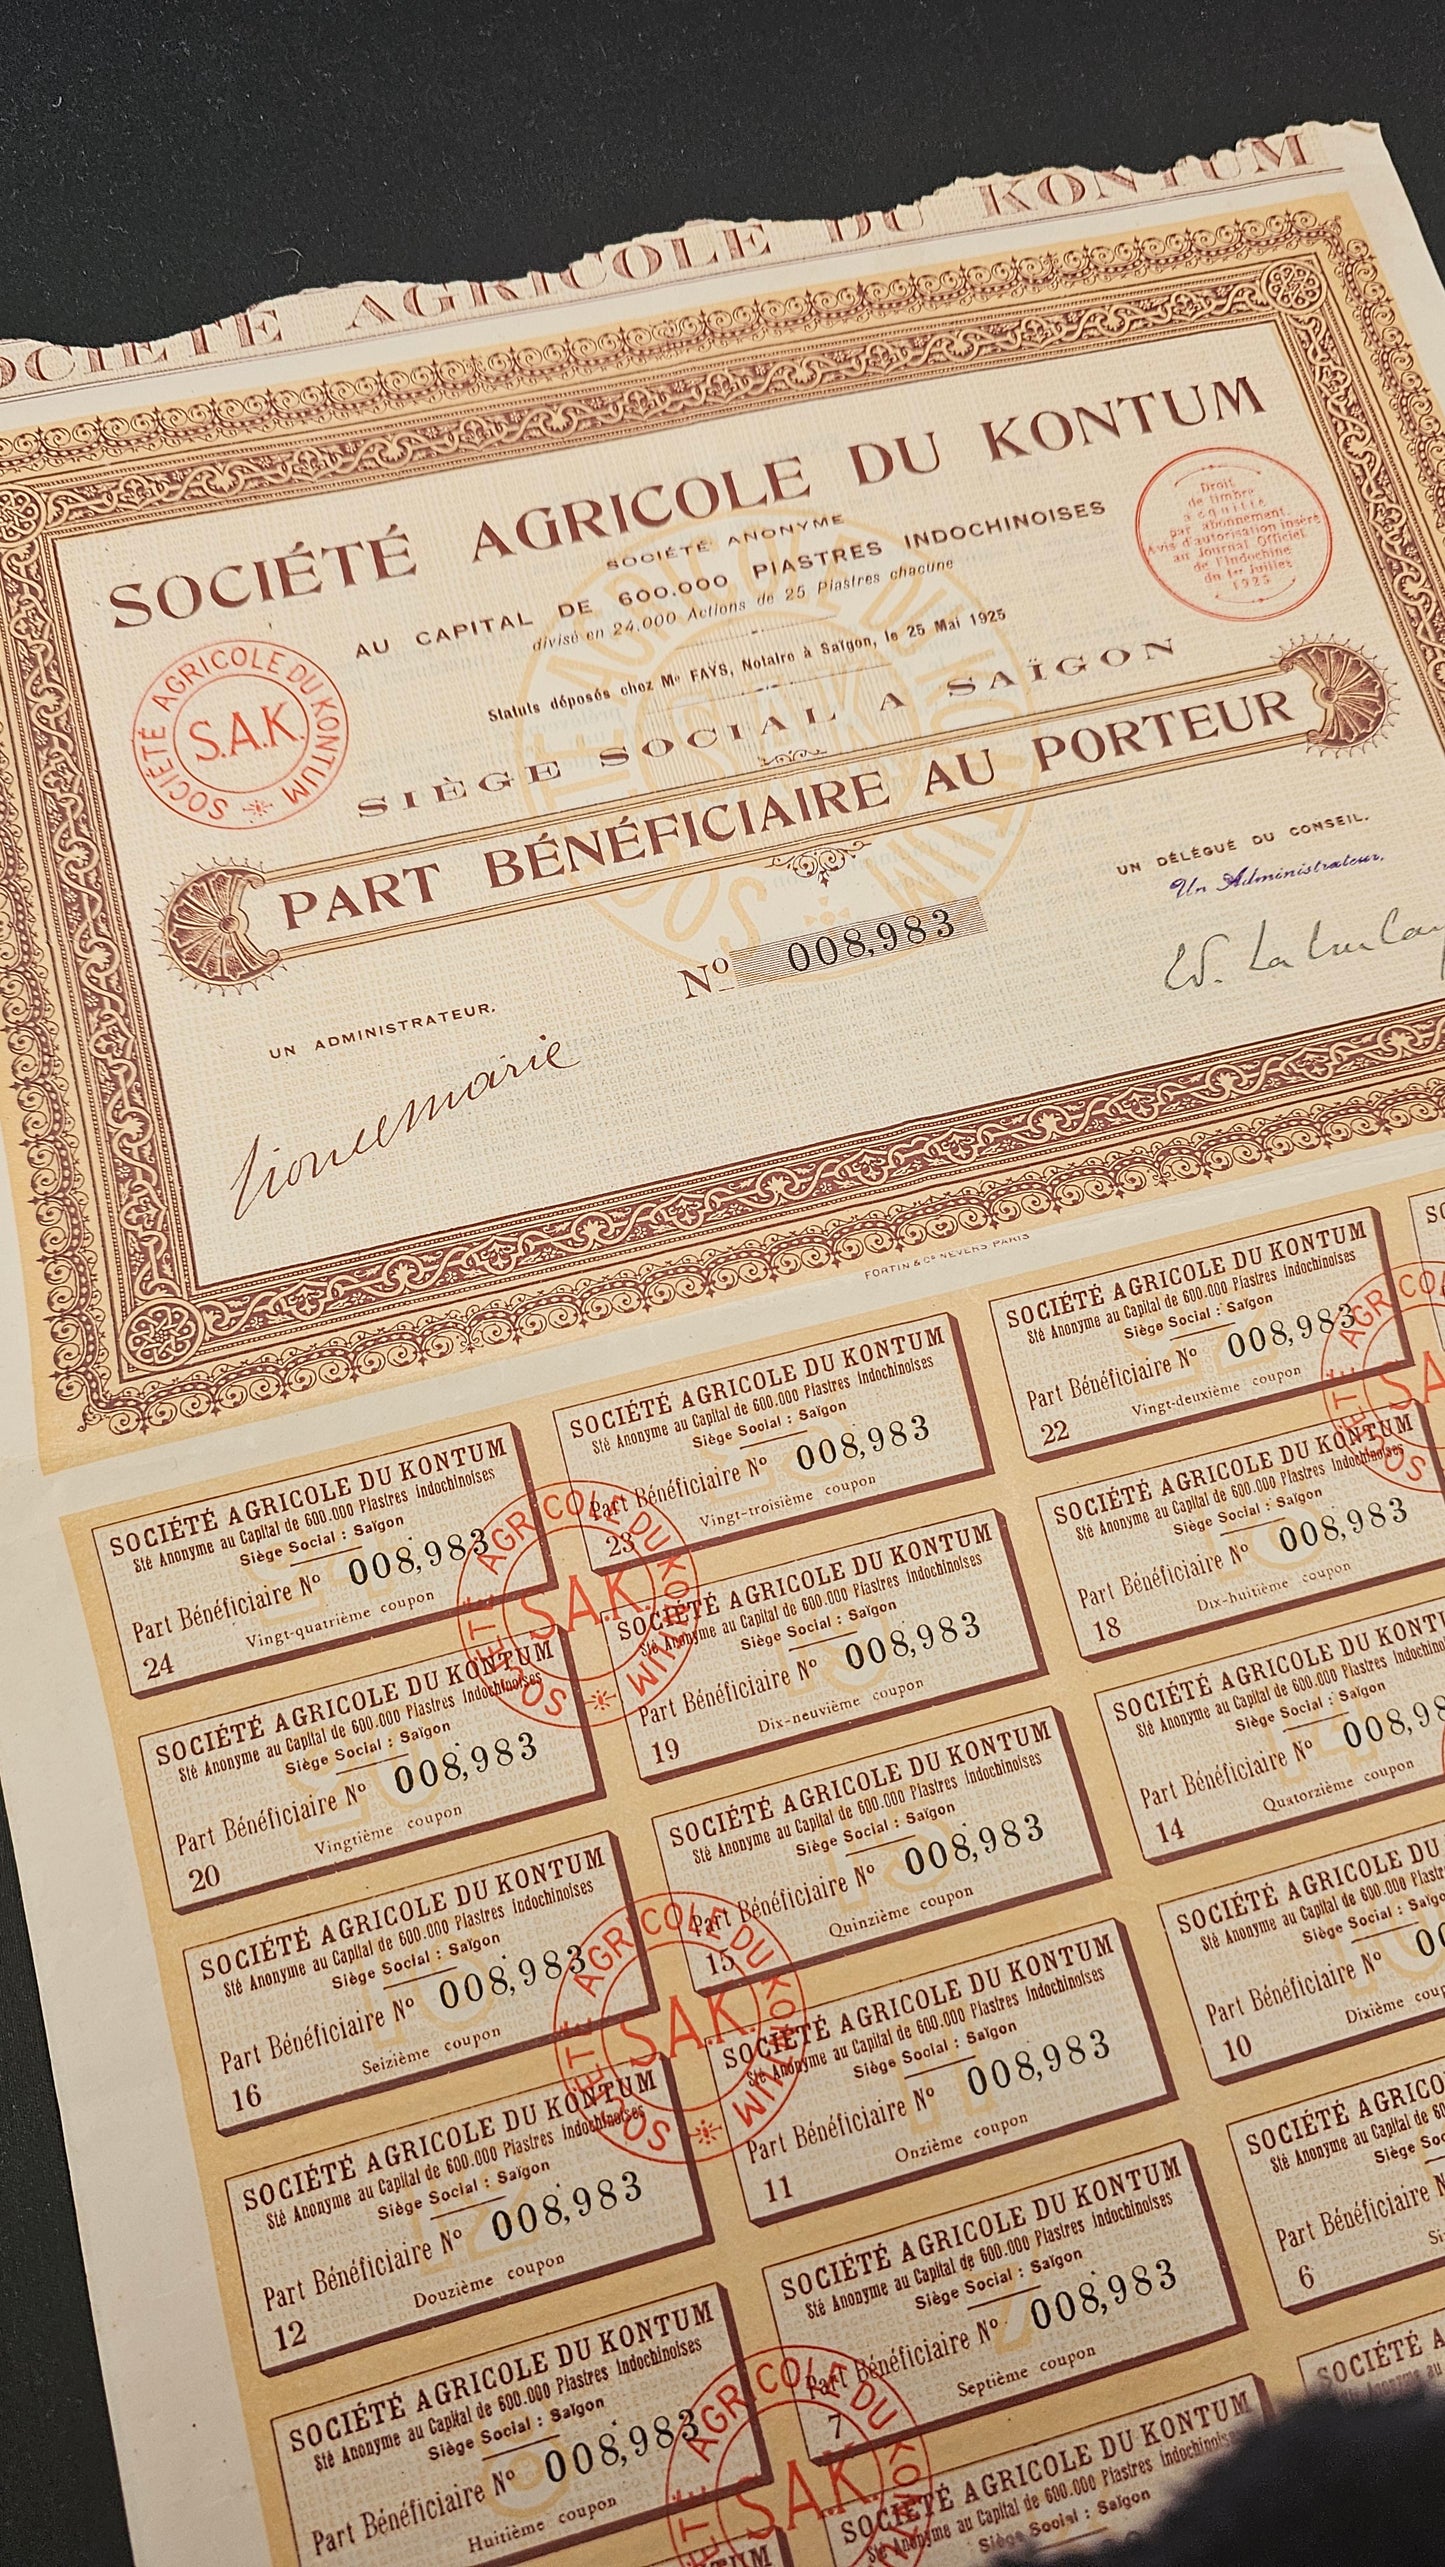 SOCIÉTÉ AGRICOLE DU KONTUM
SOCIÉTÉ AGRICOLE DU KONTUM
SOCIÉTÉ ANONYME
AU CAPITAL DE 600.000 PIASTRES INDOCHINOISES
divisé en 24.000 Actions de 25 Piastres chacune
Statuts déposés chez Me FAYS, Notaire à Saïgon, le 25 Mai 1925
SIÈGE SOCIAL A SAÏGON
Droit
de timbre
acquitté
par abonnement.
Avis d'autorisation inséré
au Journal Officiel
de l'Indochine
du 1er Juillet
1925
SOCIÉTÉ AGRICOLE DU KONTUM
S.A.K.
PART BÉNÉFICIAIRE AU PORTEUR
No 008,983
UN DÉLÉGUÉ DU CONSEIL.
Un Administrateur.
UN ADMINISTRATEUR.
FORTIN & Co NEVERS-PARIS
SOCIÉTÉ AGRICOLE DU KONTUM
Sté Anonyme au Capital de 600.000 Piastres Indochinoises
Siège Social : Saïgon
Part Bénéficiaire No 008,983
Vingt-quatrième coupon
24
SOCIÉTÉ AGRICOLE DU KONTUM
Sté Anonyme au Capital de 600.000 Piastres Indochinoises
Siège Social : Saïgon
Part Bénéficiaire No 008,983
Vingt-troisième coupon
23
SOCIÉTÉ AGRICOLE DU KONTUM
Sté Anonyme au Capital de 600.000 Piastres Indochinoises
Siège Social : Saïgon
Part Bénéficiaire No 008,983
Vingt-deuxième coupon
22
SOCIÉTÉ AGRICOLE DU KONTUM
S.A.K.
SOCIÉTÉ AGRICOLE DU KONTUM
Sté Anonyme au Capital de 600.000 Piastres Indochinoises
Siège Social : Saïgon
Part Bénéficiaire No 008,983
Vingtième coupon
20
SOCIÉTÉ AGRICOLE DU KONTUM
Sté Anonyme au Capital de 600.000 Piastres Indochinoises
Siège Social : Saïgon
Part Bénéficiaire No 008,983
Dix-neuvième coupon
19
SOCIÉTÉ AGRICOLE DU KONTUM
Sté Anonyme au Capital de 600.000 Piastres Indochinoises
Siège Social : Saïgon
Part Bénéficiaire No 008,983
Dix-huitième coupon
18
SOCIÉTÉ AGRICOLE DU KONTUM
Sté Anonyme au Capital de 600.000 Piastres Indochinoises
Siège Social : Saïgon
Part Bénéficiaire No 008,983
Seizième coupon
16
SOCIÉTÉ AGRICOLE DU KONTUM
Sté Anonyme au Capital de 600.000 Piastres Indochinoises
Siège Social : Saïgon
Part Bénéficiaire No 008,983
Quinzième coupon
15
SOCIÉTÉ AGRICOLE DU KONTUM
Sté Anonyme au Capital de 600.000 Piastres
Siège Social : Saïgon
Part Bénéficiaire No 008,98
Quatorzième coupon
14
SOCIÉTÉ AGRICOLE DU KONTUM
S.A.K.
SOCIÉTÉ AGRICOLE DU KONTUM
Sté Anonyme au Capital de 600.000 Piastres Indochinoises
Siège Social : Saïgon
Part Bénéficiaire No 008,983
Douzième coupon
12
SOCIÉTÉ AGRICOLE DU KONTUM
Sté Anonyme au Capital de 600.000 Piastres Indochinoises
Siège Social : Saïgon
Part Bénéficiaire No 008,983
Onzième coupon
11
SOCIÉTÉ AGRICOLE DU
Sté Anonyme au Capital de 600.000
Siège Social :
Part Bénéficiaire No
Dixième
10
SOCIÉTÉ AGRICOLE DU KONTUM
Sté Anonyme au Capital de 600.000 Piastres Indochinoises
Siège Social : Saïgon
Part Bénéficiaire No 008,983
Huitième coupon
SOCIÉTÉ AGRICOLE DU KONTUM
Sté Anonyme au Capital de 600.000 Piastres Indochinoises
Siège Social : Saïgon
Part Bénéficiaire No 008,983
Septième coupon
7
SOCIÉTÉ
Sté Anonyme au Capital de
Siège
Part Bénéficiaire
6
AGRICOLE DU
S.A.K.
SOCIÉTÉ AGRICOLE DU KONTUM
Sté Anonyme au Capital de 600.000 Piastres Indochinoises
Siège Social : Saïgon
SOCIÉTÉ